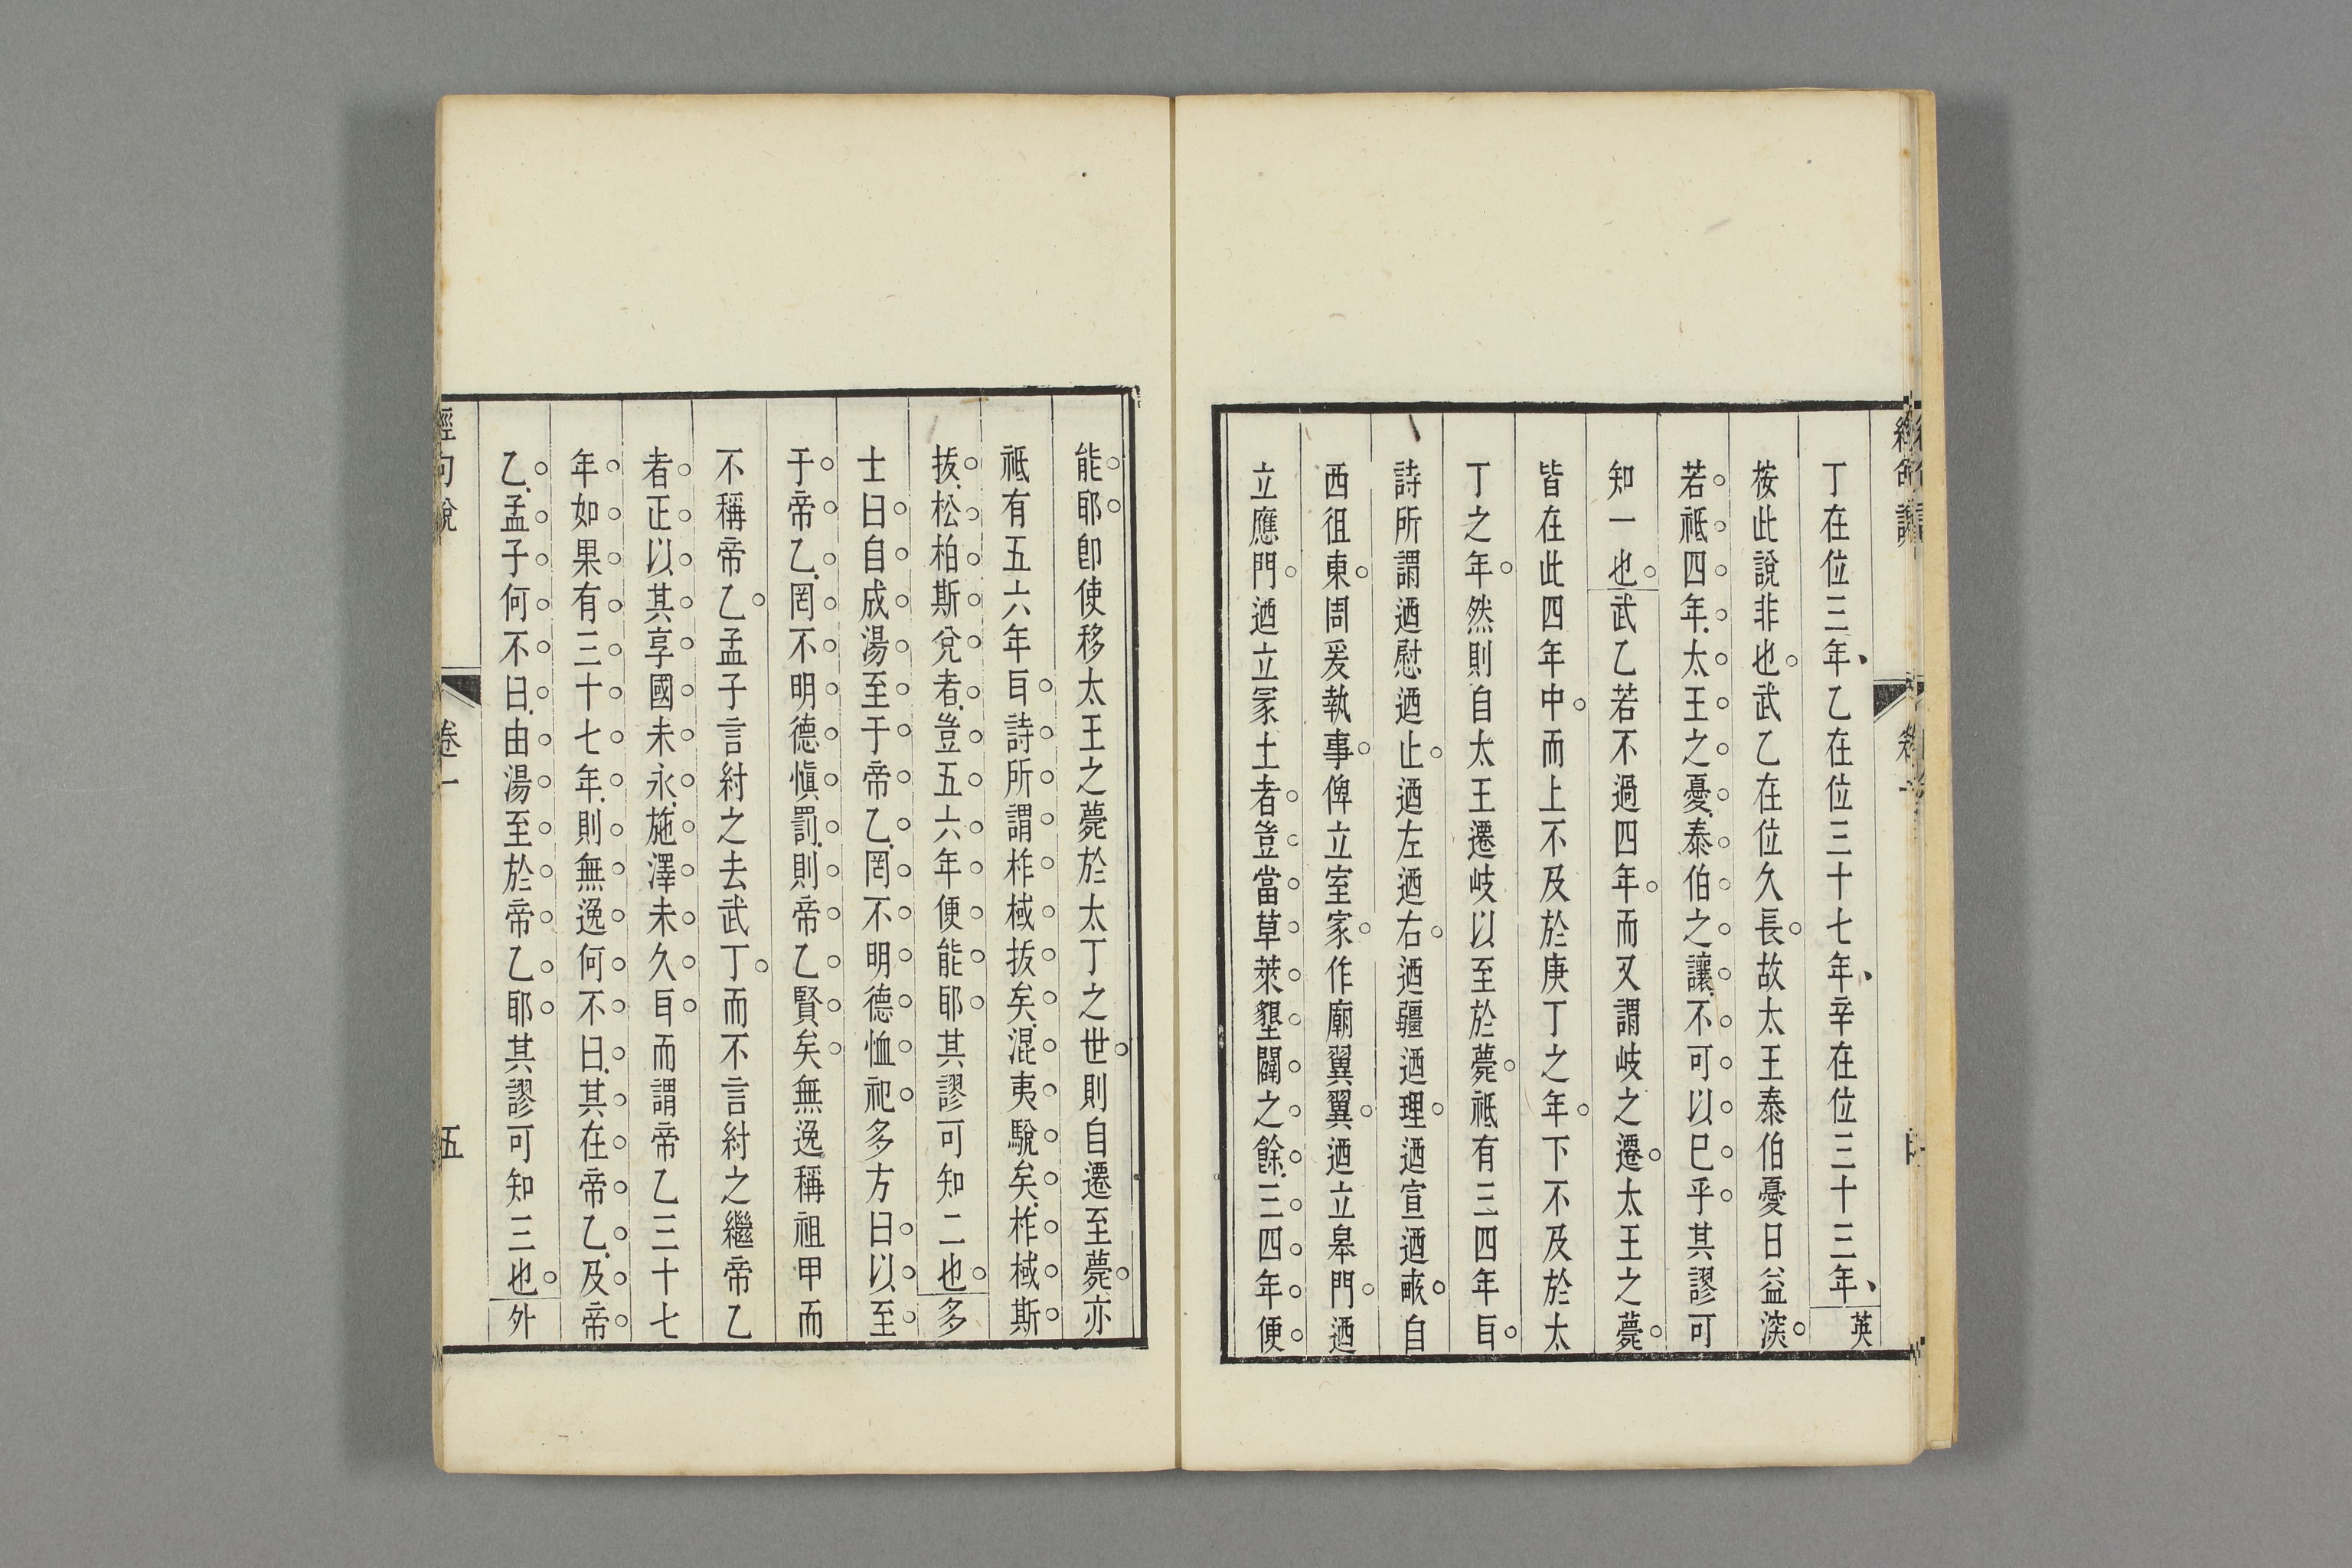 丁在位三年乙在位三十七年辛在位三十三年英
按此說非也武乙在位久長故太王泰伯憂日益深
若祗四年太王之憂泰伯之讓不可以已乎其謬可
知一也武乙若不過四年而又謂岐之遷太王之薨
皆在此四年中而上不及於庚丁之年下不及於太
丁之年然則自太王遷岐以至於薨祗有三四年耳
詩所謂迺慰迺止迺左迺右迺疆迺理迺宣迺畝自
西徂東周爰執事俾立室家作廟翼翼迺立皋門迺
立應門迺立冢土者豈當草萊墾闢之餘三四年便
能耶卽使移太王之薨於太丁之世則自遷至薨亦
祗有五六年耳詩所謂柞棫拔矣混夷駾矣柞棫斯
拔松柏斯兌者豈五六年便能耶其謬可知二也多
士曰自成湯至于帝乙罔不明德恤祀多方曰以至
于帝乙罔不明德愼罰則帝乙賢矣無逸稱祖甲而
不稱帝乙孟子言紂之去武丁而不言紂之繼帝乙
者正以其享國未永施澤未久耳而謂帝乙三十七
年如果有三十七年則無逸何不曰其在帝乙及帝
乙孟子何不曰由湯至於帝乙耶其謬可知三也外
經句說 卷一 五